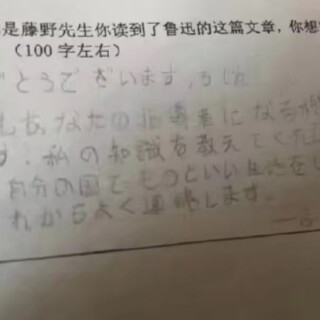 是藤野先生你读到了鲁迅的这篇文章,你想
(100字左右)
とうございます,ろじん
あなたの指導者になる
私の知識を教えてくれ
自分の国でもっといい生活をし
れからよく連絡します。